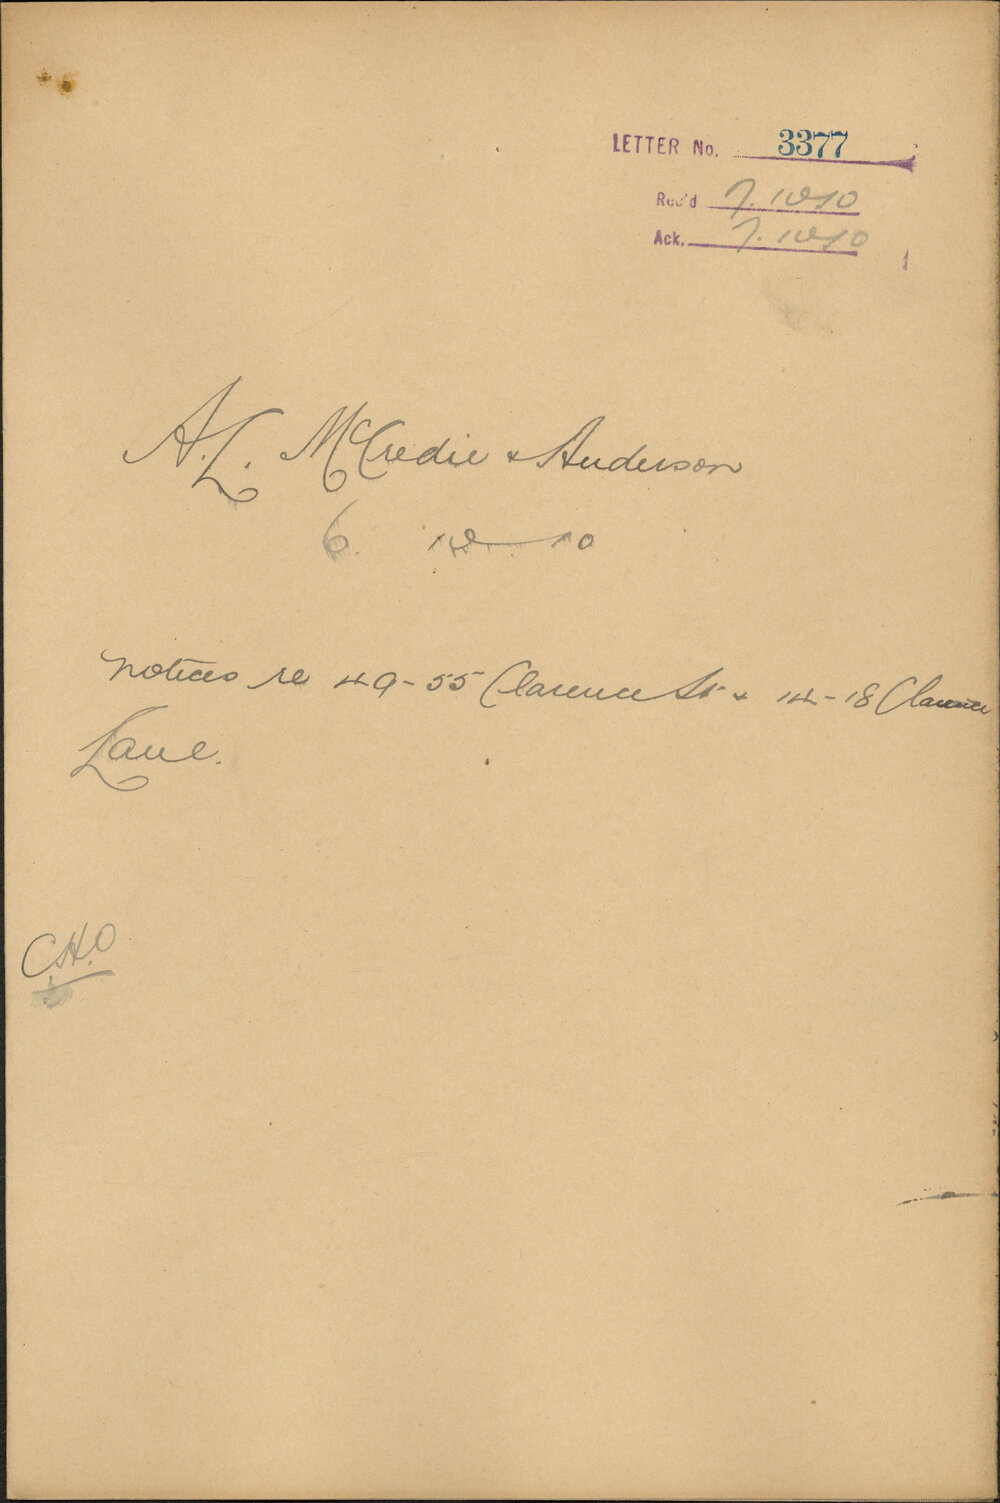 LETTER No. 3377
Rec'd 7. 12 10
Ack. 7. 12 10
A. L. McCredie & Anderson
6. 12 10
notices re 49-55 Clarence St & 14-18 Clarence
Lane.
C.H.O